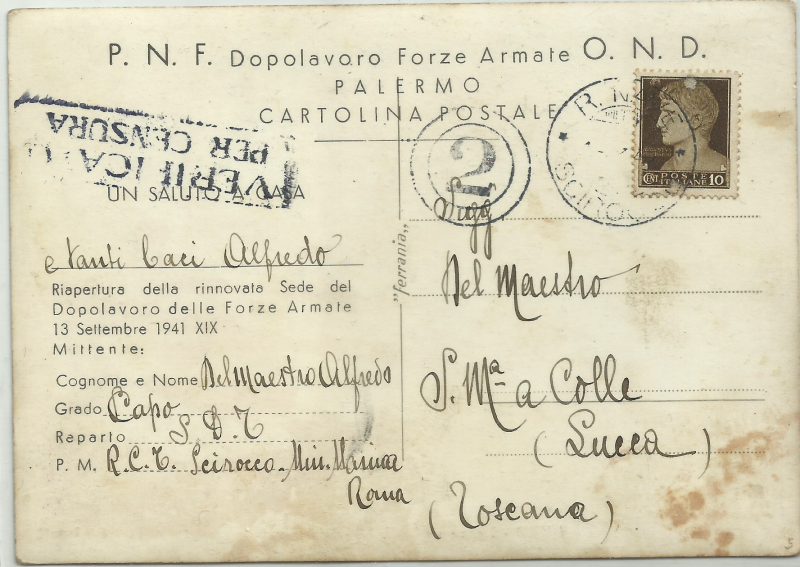 P. N. F. Dopolavoro Forze Armate O. N. D.
PALERMO
CARTOLINA POSTALE
VERIFICATO
PER CENSURA
2
R. N.
SCIROCCO
POSTE
ITALIANE
CENT 10
UN SALUTO A CASA
e tanti baci Alfredo
Riapertura della rinnovata Sede del
Dopolavoro delle Forze Armate
13 Settembre 1941 XIX
Mittente:
Cognome e Nome Del Maestro Alfredo
Grado Capo
Reparto S. D. T
P. M. R.C.T. Scirocco. Min. Marina
Roma
"ferrania"
Del Maestro
S. Mª a Colle
(Lucca)
(Toscana)
5